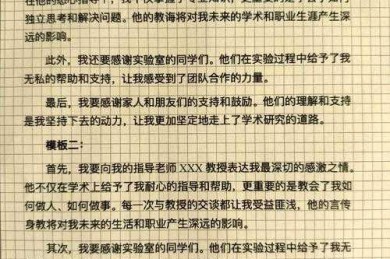 独立思考和解决问题。他的教诲将对我未来的学术和职业生涯产生深
远的影响。
此外，我还要感谢实验室的同学们。他们在实验过程中给予了我
无私的帮助和支持，让我感受到了团队合作的力量。
最后，我要感谢家人和朋友们的支持和鼓励。他们的理解和支持
是我坚持下去的动力，让我更加坚定地走上了学术研究的道路。
模板二：
首先，我要向我的指导老师 XXX 教授表达我最深切的感激之情。
他不仅在学术上给予了我耐心的指导和帮助，更重要的是教会了我如
何做人、如何做事。每一次与教授的交谈都让我受益匪浅，他的言传
身教将对我未来的生活和职业产生深远的影响。
其次，我要感谢实验室的同学们。他们在实验过程中给予了我无